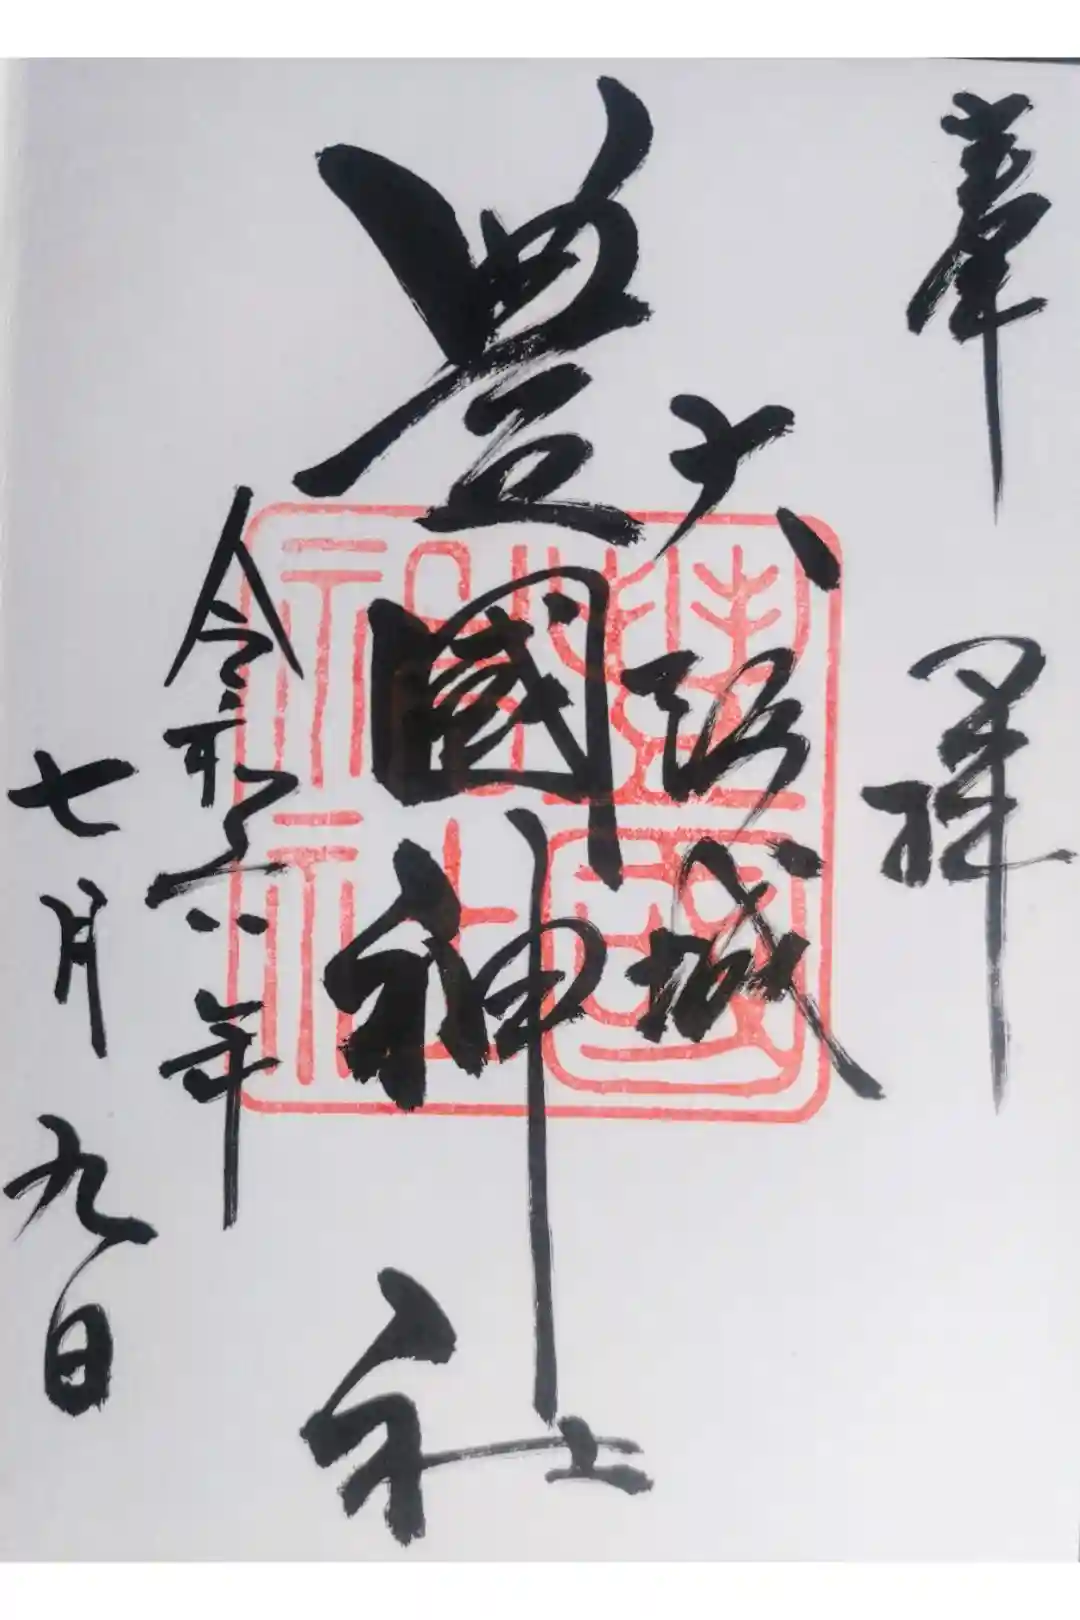 奉拝
大阪城
豊國神社
令和六年
七月九日
豐國神社